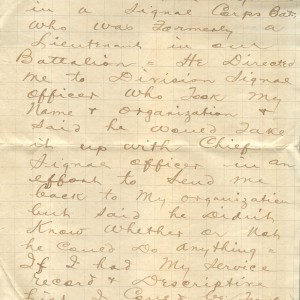 in a Signal Corps Bat.
who was Formerly a
Lieutenant in our
Battalion = He Directed
Me to Division Signal
officer Who Took My
Name & organization &
Said he Would Take
it up with Chief
Signal officer in an
effort to Send me
back to My organization
but Said he Didn't
Know Whether or Not
he Could Do anything =
If I had My Service
record & Descriptive
list I Could